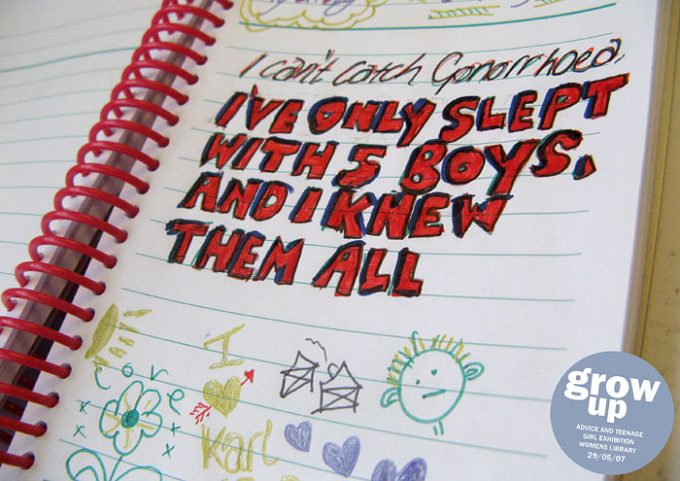 I can't catch Gonorrhoea.
I'VE ONLY SLEPT
WITH 5 BOYS.
AND I KNEW
THEM ALL
Love
I
Karl
grow
up
ADVICE AND TEENAGE
GIRL EXHIBITION
WOMENS LIBRARY
29/05/07